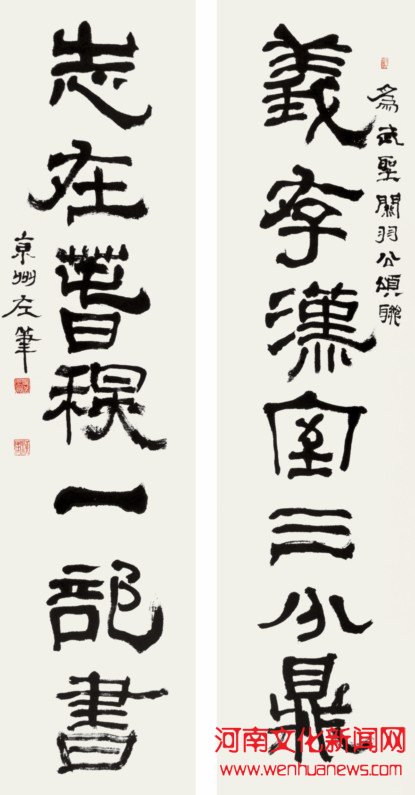 為武聖關羽公頌聯
義存漢室三分鼎
志在春秋一部書
京州左筆
河南文化新闻网
www.wenhuanews.com